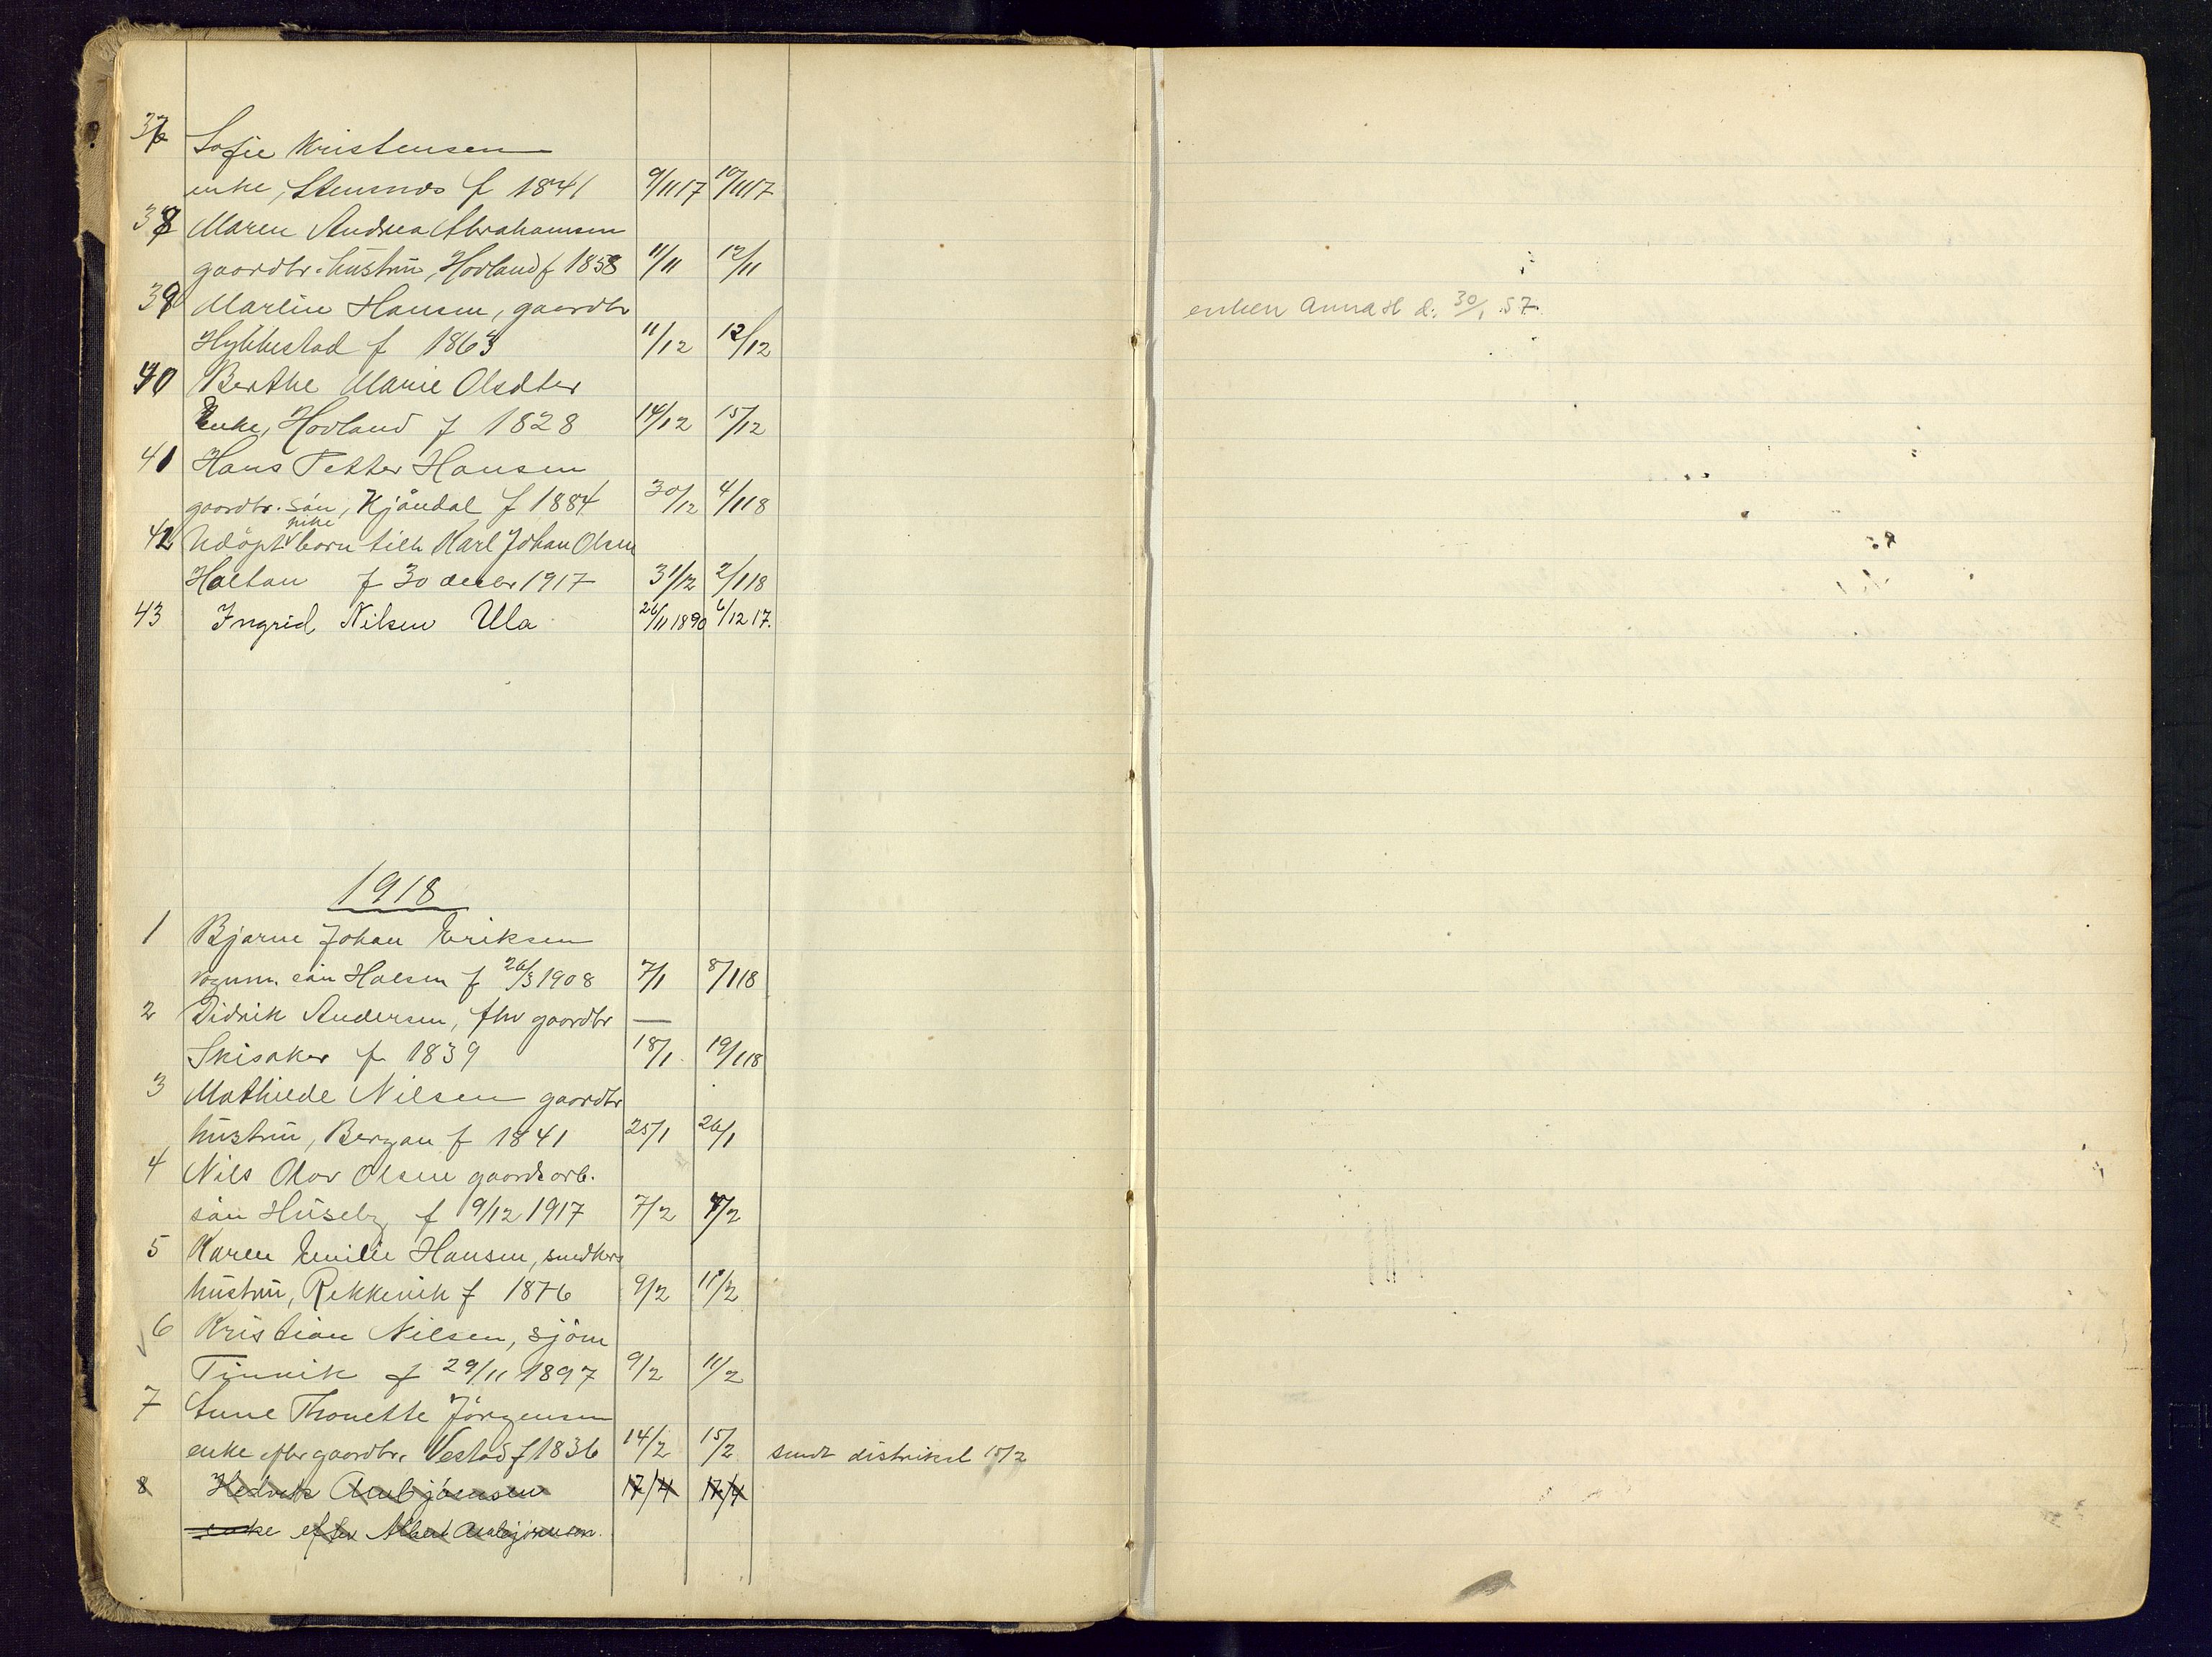 37 Sofie Kristensen
enke, Stensnes f 1841 9/11 17 10/11 17
38 Maren Andrea Abrahamsen
gaardbr. hustru, Hovland f 1858 11/11 12/11
39 Martin Hansen, gaardbr
Hybbestad f 1863 11/12 12/12
enken Anna H d. 30/1 57.
40 Berthe Marie Olsdter
Enke, Hovland f 1828 14/12 15/12
41 Hans Petter Hansen
gaardbr. sön, Kjöndal f 1884 30/12 4/1 18
pike
42 Udöpt barn till Karl Johan Olsen
Haltan f 30 decbr 1917 31/12 2/1 18
43 Ingrid Nilsen Ula 26/11 1890 6/12 17.
1918
1 Bjarne Johan Eriksen
vognm. sön Halsen f 26/3 1908 7/1 8/1 18
2 Didrik Andersen, fhv gaardbr —
Skisaker f 1839 18/1. 19/1 18
3 Mathilde Nilsen gaardbr
hustru, Bergan f 1841 25/1 26/1
4 Nils Olav Olsen gaardsarb.
sön Huseby f 9/12 1917 7/2 8/2
5 Karen Emilie Hansen, snedkers
hustru, Rekkevik f 1876 9/2 11/2
6 Kristian Nilsen, sjöm
Tinvik f 29/11 1897 9/2 11/2
7 Anne Thonette Jörgensen
enke efter gaardbr. Vestad f 1836 14/2 15/2 sendt distriksl 15/2
8 Hedvik Ambjörnsen 17/4 17/4
enke efter Albert Ambjörnsen.